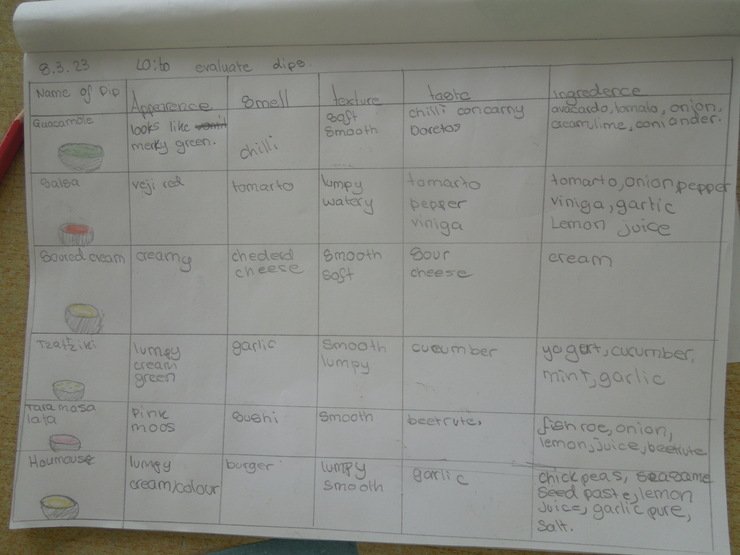 8.3.23 LO: to evaluate dips
Name of Dip Appearence smell texture taste ingredence
Guacamole
looks like vomit
merky green.
chilli
soft
smooth
chilli concarny
Doretos
avacardo, tomato, onion,
cream, lime, coriander.
Salsa
veji red
tomarto
lumpy
watery
tomarto
pepper
viniga
tomarto, onion pepper
viniga, garlic
Lemon juice
Soured cream
creamy
chederd
cheese
smooth
soft
sour
cheese
cream
Tzatziki
lumpy
cream
green
garlic
smooth
lumpy
cucumber
yogart, cucumber,
mint, garlic
Tara masa
lata
pink
moos
sushi
smooth
beetrute,
fish roe, onion,
lemon, juice, beetrute
Houmouse
lumpy
cream/colour
burger
lumpy
smooth
garlic
chick peas, seasame
seed paste, lemon
juice, garlic pure,
salt.